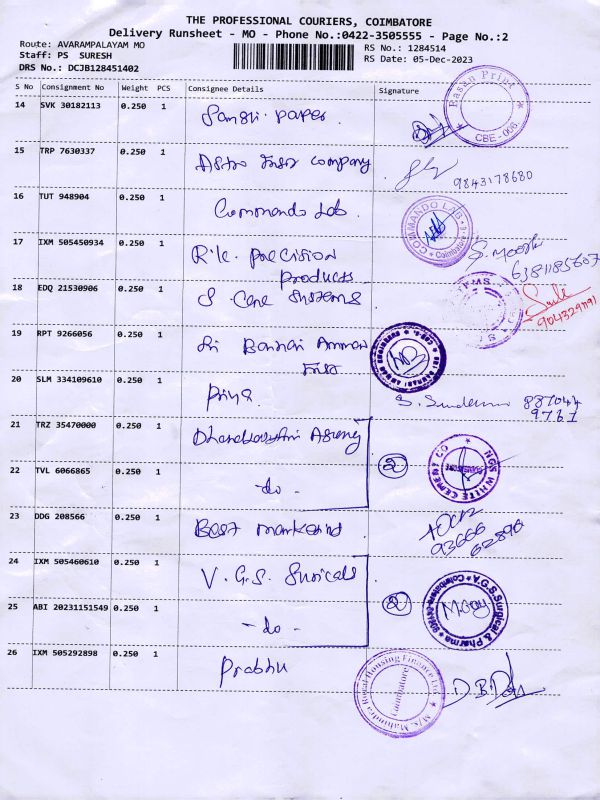 THE PROFESSIONAL COURIERS, COIMBATORE
Delivery Runsheet - MO - Phone No.:0422-3505555 - Page No.:2
Route: AVARAMPALAYAM MO
RS No.: 1284514
Staff: PS SURESH
RS Date: 05-Dec-2023
DRS No.: DCJB128451402
S No Consignment No Weight PCS Consignee Details Signature
14 SVK 30182113 0.250 1 paper.
Easan Print
CBE-006
15 TRP 7630337 0.250 1 company
9843178680
16 TUT 948904 0.250 1 Commando Lab.
COMMANDO LAB
Coimbatore
17 IXM 505450934 0.250 1 R.k. precision
products
6381185607
18 EDQ 21530906 0.250 1 S Cane Systems
9043291191
19 RPT 9266056 0.250 1 Sri Bannari Amman
20 SLM 334109610 0.250 1 Priya.
887044
9761
21 TRZ 35470000 0.250 1
2
WHITE CEMENT CO
22 TVL 6066865 0.250 1 -do-
23 DDG 208566 0.250 1 Best marketing
93666
62896
24 IXM 505460610 0.250 1 V.G.S. Surgicals
2
V.G.S. Surgical & Pharma
Coimbatore
25 ABI 20231151549 0.250 1 -do-
26 IXM 505292898 0.250 1 Prabhu
M/s. Mahindra Rural Housing Finance Ltd
Coimbatore